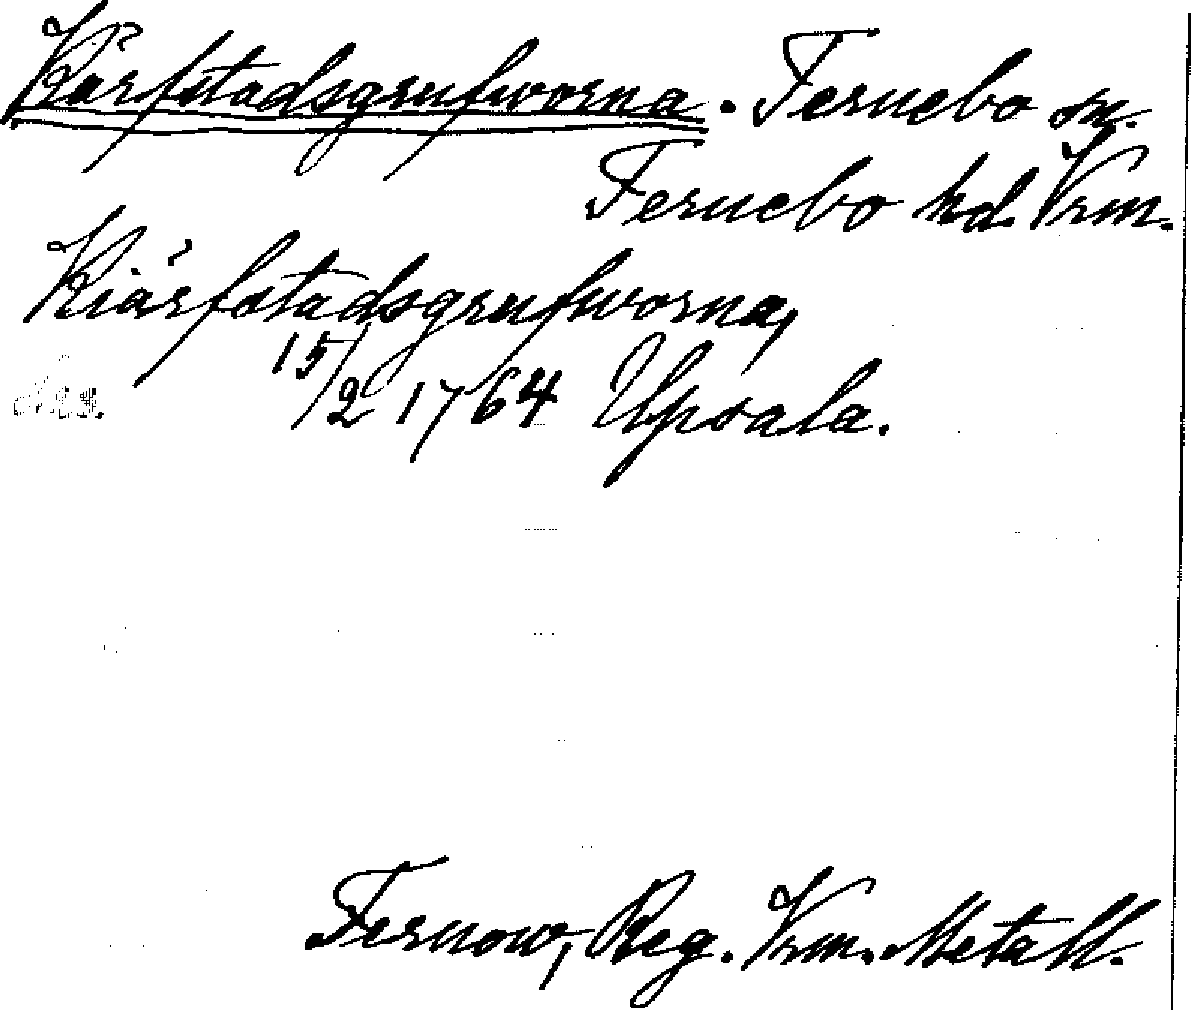 Kärfstadsgrufworna. Fernebo sn.
Fernebo hd. Vrm.
Kiärfstadsgrufworna,
15/2 1764 Upsala.
Fernow, Reg. Vrm. Metall.